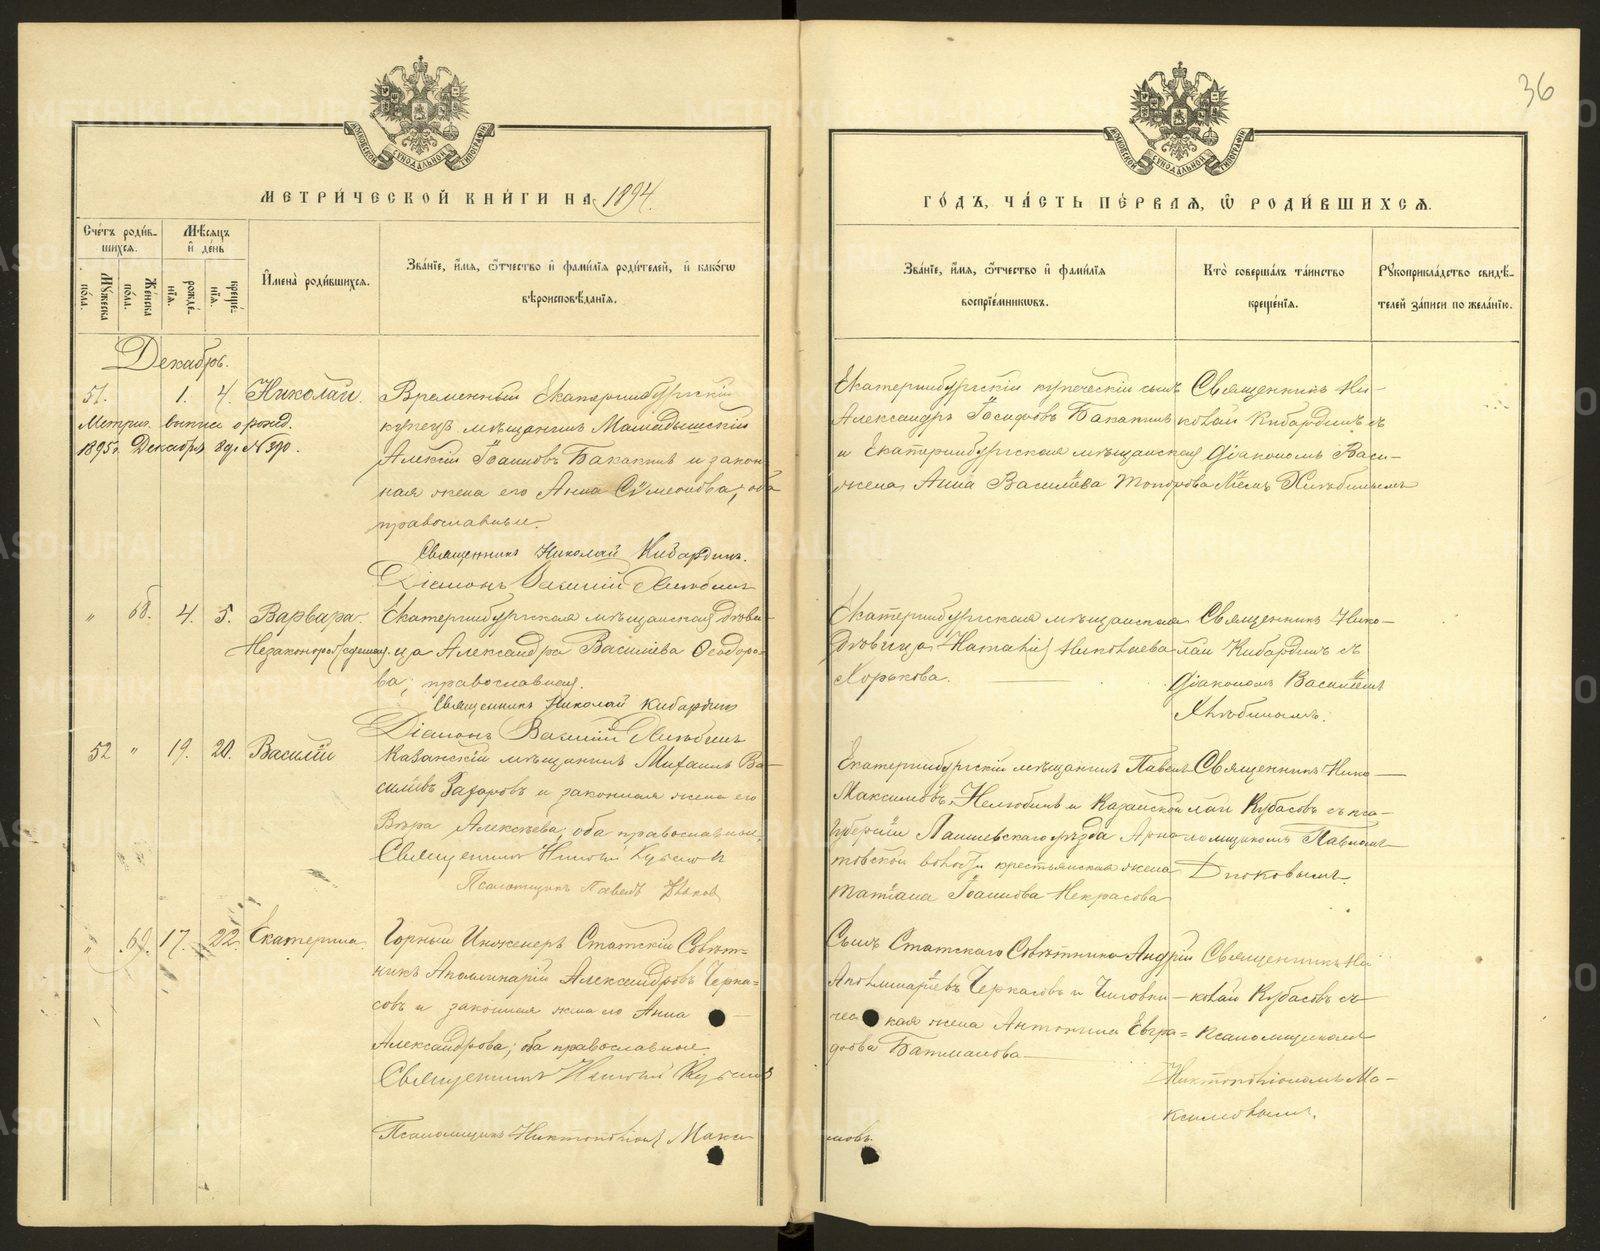 36
МОСКОВСКОЙ СѴНОДАЛЬНОЙ ТИПОГРАФІИ
МОСКОВСКОЙ СѴНОДАЛЬНОЙ ТИПОГРАФІИ
МЕТРИ́ЧЕСКОЙ КНИ́ГИ НА 1894.
ГО́ДЪ, ЧА́СТЬ ПЕ́РВАЯ, Ѡ РОДИ́ВШИХСЯ.
Сче́тъ роди́в-
шихся.
Мѣ́сяцъ
и де́нь
Му́жеска
по́ла.
Же́нска
по́ла.
рожде́-
нїя.
креще́-
нїя.
Имена̀ роди́вшихся.
Зва́нїе, и́мя, ѻ́тчество и фами́лїя роди́телей, и како́гѡ
вѣроисповѣ́данїя.
Зва́нїе, и́мя, ѻ́тчество и фами́лїя
воспрїе́мникѡвъ.
Кто̀ соверша́лъ та́инство
креще́нїя.
Рꙋкоприкла́дство свидѣ́-
телей за́писи по жела́нїю.
Декабрь.
51. 1. 4. Николай.
Метрич. выпись о рожд.
1895г. Декабря 8д. № 390.
Временный Екатеринбургскій
купецъ мѣщанинъ Мамадышскій
Алексій Іоанновъ Бакакинъ и закон-
ная жена его Анна Сѵмеонова, оба
православные.
Священникъ Николай Кибардинъ.
Діаконъ Василій Хлѣбинъ
Екатеринбургскій купеческій сынъ
Александръ Іосифовъ Бакакинъ
и Екатеринбургская мѣщанская
жена Анна Василіева Топорова
Священникъ Ни-
колай Кибардинъ съ
Діакономъ Васи-
ліемъ Хлѣбинымъ
" 68. 4. 5. Варвара
Незаконорожденная.
Екатеринбургская мѣщанская дѣви-
ца Александра Василіева Ѳеодоро-
ва, православная.
Священникъ Николай Кибардинъ
Діаконъ Василій Хлѣбинъ
Екатеринбургская мѣщанская
дѣвица Наталія Николаева
Хорькова.
Священникъ Нико-
лай Кибардинъ съ
Діакономъ Василіемъ
Хлѣбинымъ.
52 " 19. 20. Василій
Казанскій мѣщанинъ Михаилъ Ва-
силіевъ Захаровъ и законная жена его
Вѣра Алексѣева, оба православные.
Священникъ Николай Кубасовъ
Псаломщикъ Павелъ Дьяковъ
Екатеринбургскій мѣщанинъ Павелъ
Максимовъ Нелюбинъ и Казанской
губерніи Лаишевскаго уѣзда
волости крестьянская жена
Татіана Іоаннова Некрасова
Священникъ Нико-
лай Кубасовъ съ пса-
ломщикомъ Павломъ
Дьяковымъ.
" 69. 17. 22. Екатерина
Горный Инженеръ Статскій Совѣт-
никъ Аполлинарій Александровъ Черка-
совъ и законная жена его Анна
Александрова; оба православные.
Священникъ Николай Кубасовъ
Псаломщикъ Никтополіонъ Макси
мовъ.
Сынъ Статскаго Совѣтника Андрей
Аполлинаріевъ Черкасовъ и Чиновни-
ческая жена Антонина Евгра-
фова Батманова
Священникъ Ни
колай Кубасовъ съ
псаломщикомъ
Никтополіономъ Ма-
ксимовымъ.